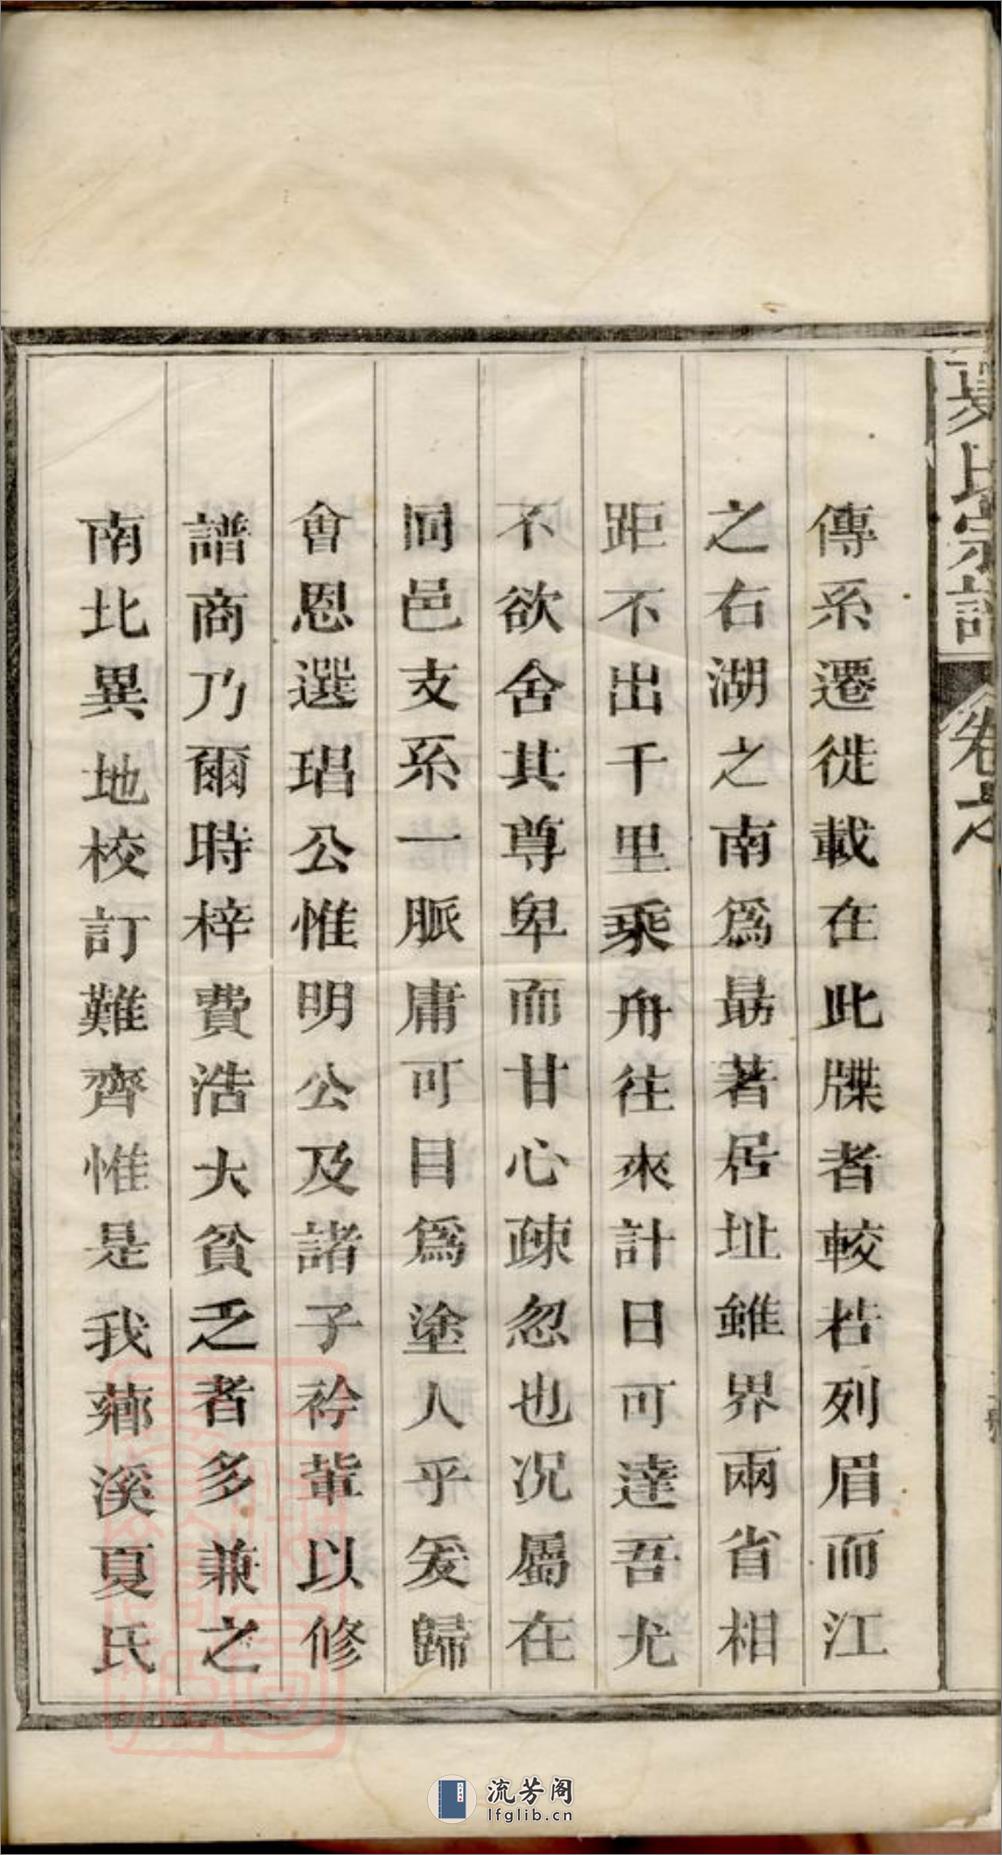 夏氏宗譜
卷之
傳系遷徙載在此牒者較若列眉而江
之右湖之南爲最著居址雖界兩省相
距不出千里乘舟往來計日可達吾尤
不欲舍其尊卑而甘心疎忽也况屬在
同邑支系一脈庸可目爲塗人乎爰歸
會恩選琩公惟明公及諸子衿輩以修
譜商乃爾時梓費浩大貧乏者多兼之
南北異地校訂難齊惟是我薌溪夏氏
流芳阁
lfglib.cn